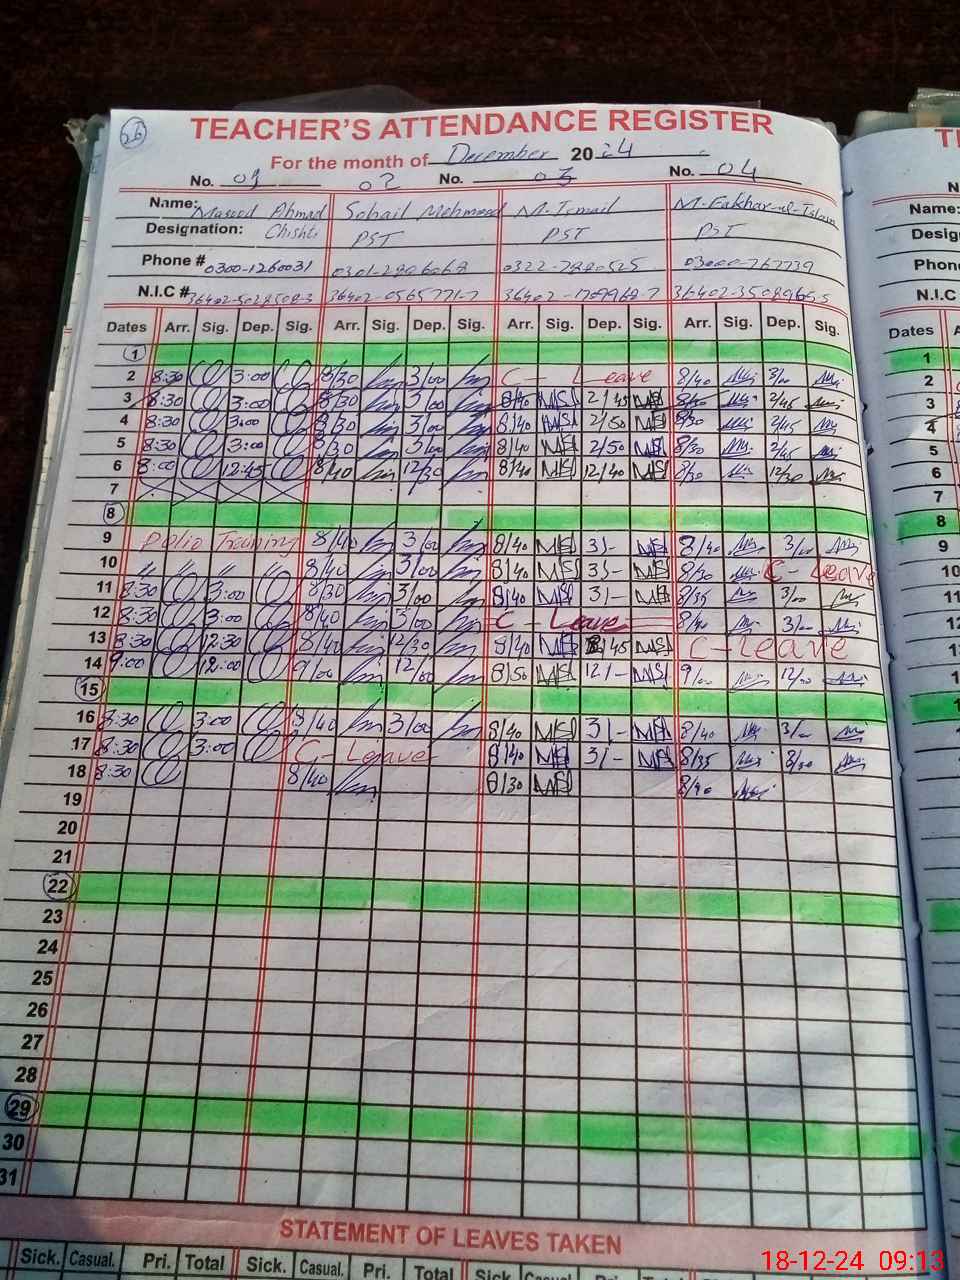 26
TEACHER'S ATTENDANCE REGISTER
For the month of December 2024
No. 01 02 No. 03 No. 04
Name: Masood Ahmad Sohail Mehmood M-Ismail M-Fakhar-ul-Islam
Designation: Chishti PST PST PST
Phone # 0300-1260031 0322-7220525
N.I.C #
Dates Arr. Sig. Dep. Sig. Arr. Sig. Dep. Sig. Arr. Sig. Dep. Sig. Arr. Sig. Dep. Sig.
1
2 8:30 3:00 8/30 3/00 C - Leave 8/40 3/00
3 8:30 3:00 8/30 3/00 8/40 MSI 2/45 MSI 8/40 2/45
4 8:30 3:00 8/30 3/00 8/40 MSI 2/50 MSI 8/30 2/45
5 8:30 3:00 8/30 3/00 8/40 MSI 2/50 MSI 8/30 2/45
6 8:00 12:45 8/40 12/30 8/40 MSI 12/40 MSI 8/30 12/30
7
8
9 Polio Training 8/40 3/00 8/40 MSI 3/- MSI 8/40 3/00
10 " " " " 8/40 3/00 8/40 MSI 3/- MSI 8/30 C - Leave
11 8:30 3:00 8/30 3/00 8/40 MSI 3/- MSI 8/35 3/00
12 8:30 3:00 8/40 3/00 C - Leave 8/40 3/00
13 8:30 12:30 8/40 12/30 8/40 MSI 45 MSI C - Leave
14 9:00 12:00 9/00 12/00 8/50 MSI 12/- MSI 9/00 12/00
15
16 8:30 3:00 8/40 3/00 8/40 MSI 3/- MSI 8/40 3/-
17 8:30 3:00 C - Leave 8/40 MSI 3/- MSI 8/35 3/00
18 8:30 8/40 8/30 MSI 8/40
19
20
21
22
23
24
25
26
27
28
29
30
31
STATEMENT OF LEAVES TAKEN
Sick. Casual. Pri. Total Sick. Casual. Pri. Total Sick Casual. Pri. Total
Name:
Phon
N.I.C
Dates
1
2
3
4
5
6
7
8
9
10
11
12
18-12-24 09:13